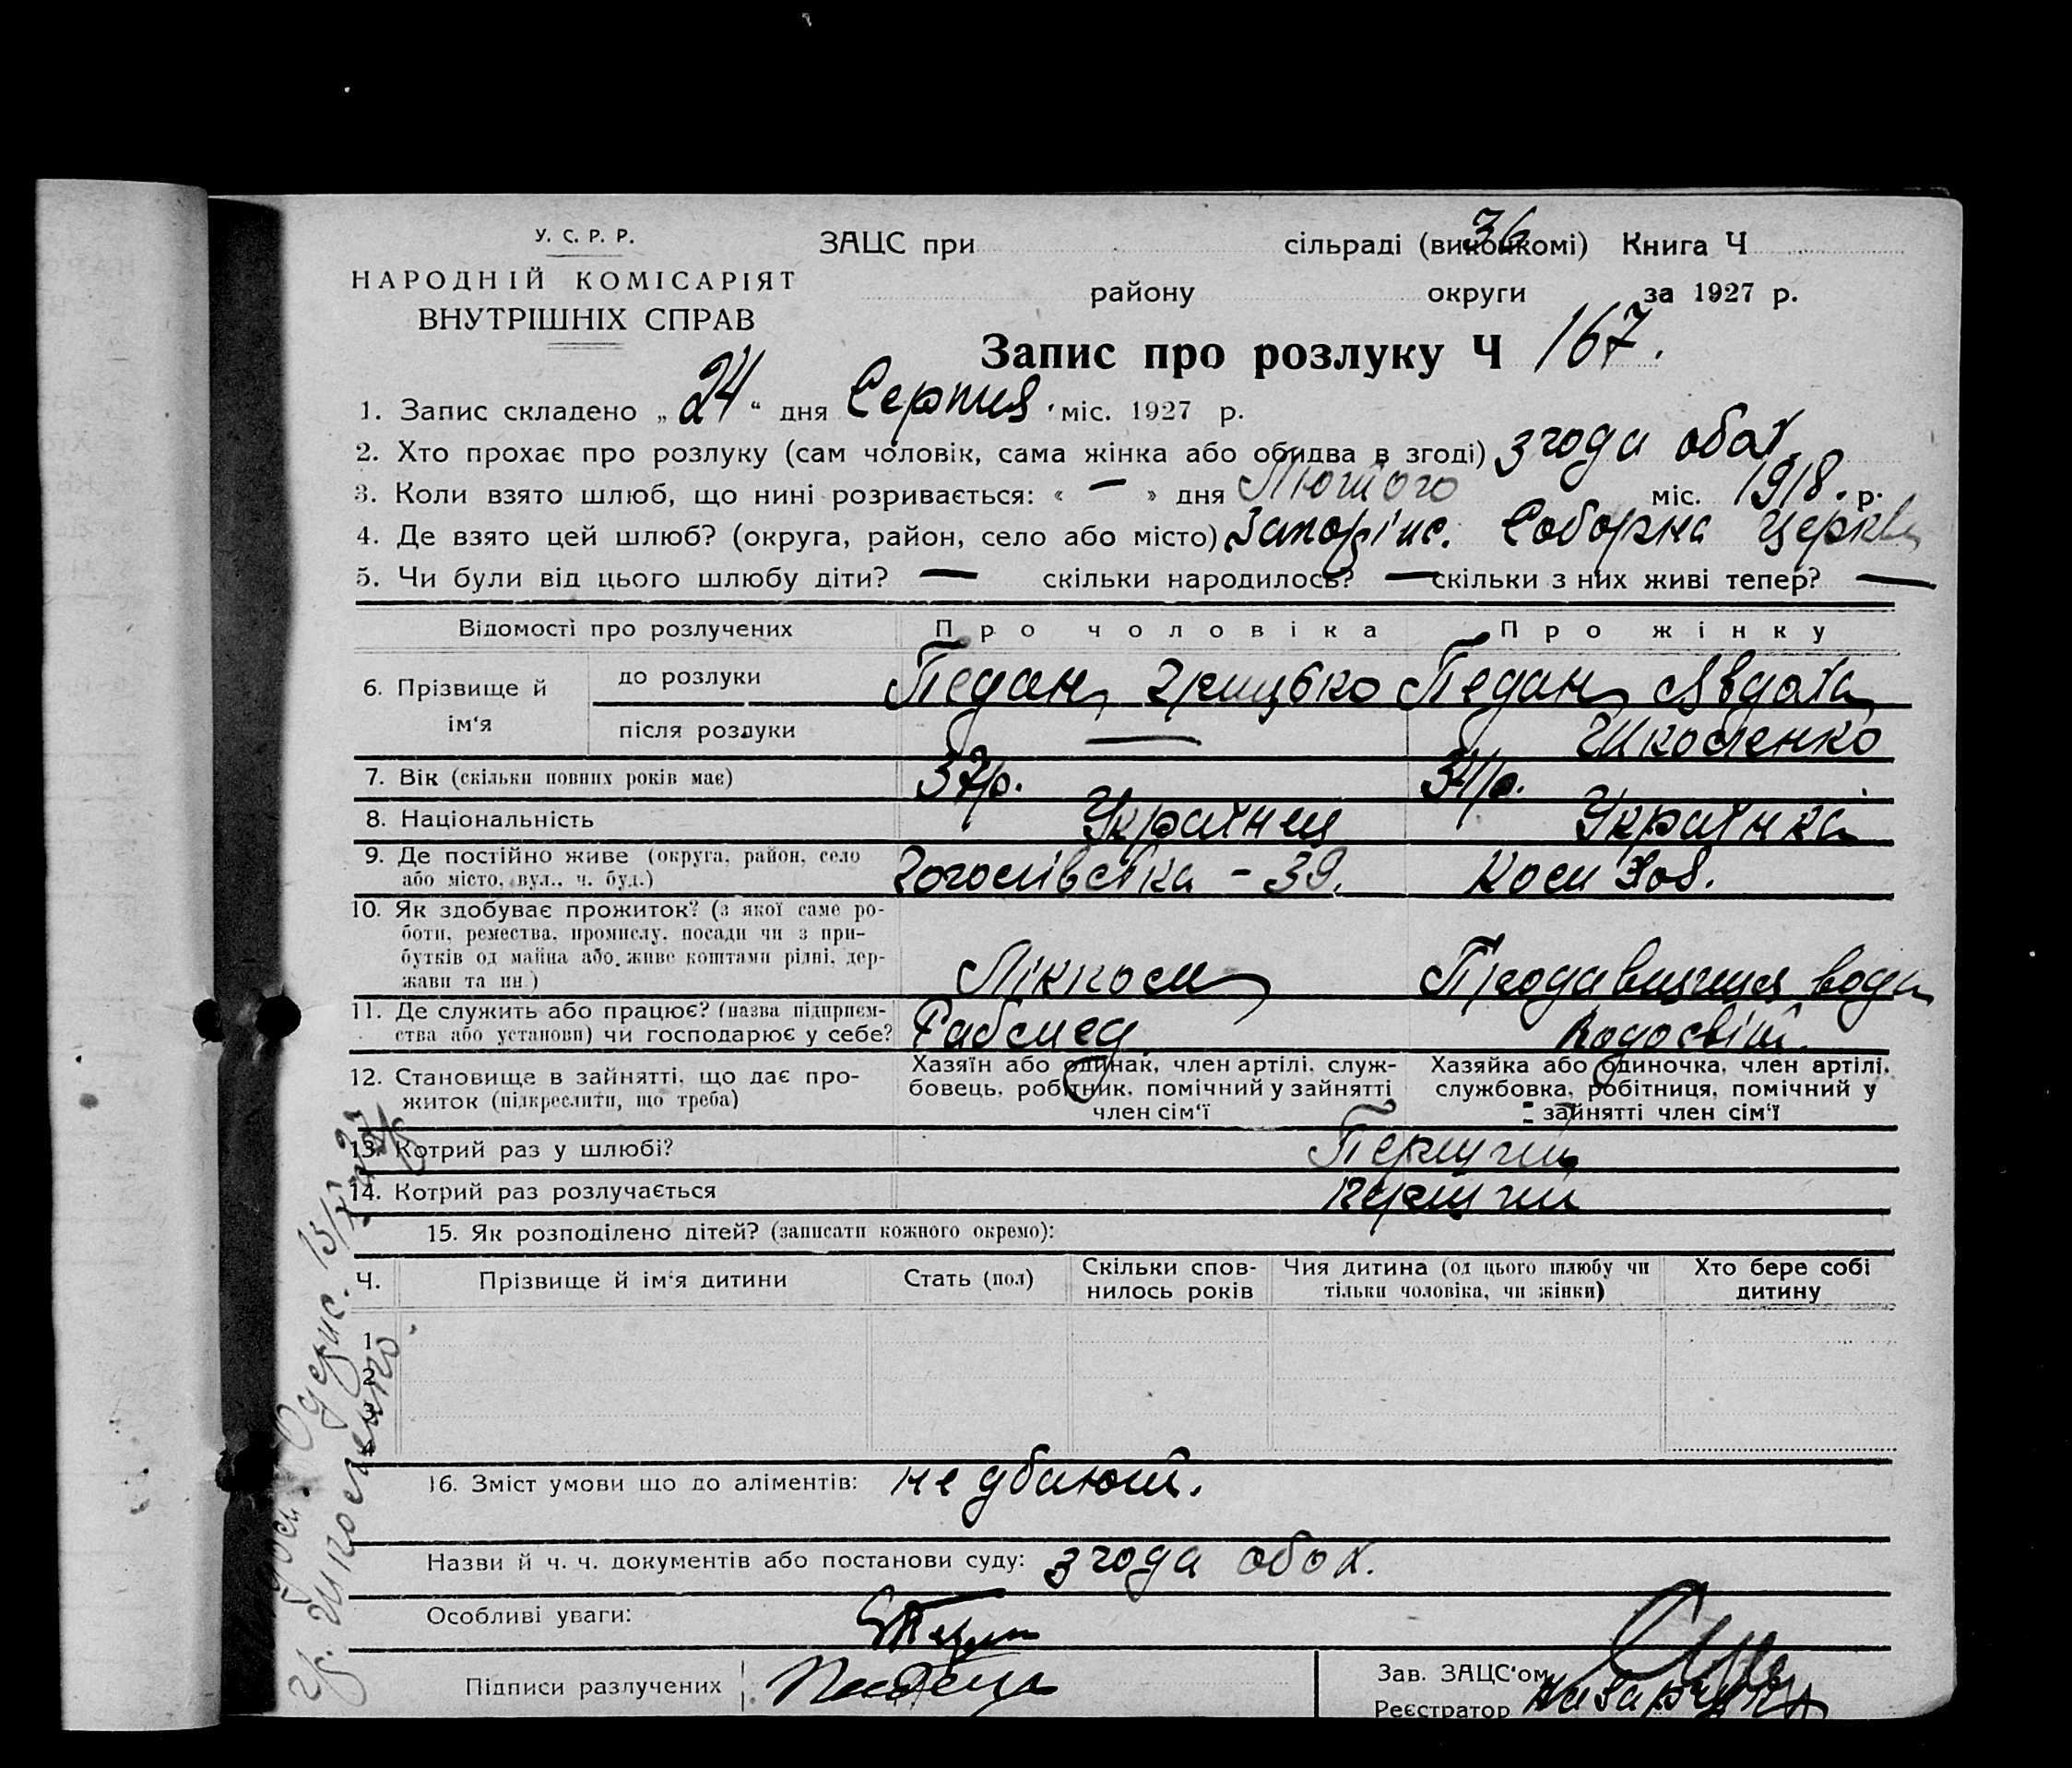 У. С. Р. Р.
НАРОДНІЙ КОМІСАРІЯТ
ВНУТРІШНІХ СПРАВ
ЗАЦС при сільраді (виконкомі) Книга Ч 36
району округи за 1927 р.
Запис про розлуку Ч 167.
1. Запис складено „24“ дня Серпня міс. 1927 р.
2. Хто прохає про розлуку (сам чоловік, сама жінка або обидва в згоді) згода обох
3. Коли взято шлюб, що нині розривається: « — » дня Лютого міс. 1918. р.
4. Де взято цей шлюб? (округа, район, село або місто) Запоріж. Соборна церква
5. Чи були від цього шлюбу діти? — скільки народилось? — скільки з них живі тепер? —
Відомості про розлучених Про чоловіка Про жінку
6. Прізвище й ім‘я
до розлуки Педан Грицько Педан Явдоха
після розлуки — Школенко
7. Вік (скільки повних років має) 37 р. 34 р.
8. Національність Українец Українка
9. Де постійно живе (округа, район, село або місто, вул., ч. буд.) - 39.
10. Як здобуває прожиток? (з якої саме роботи, ремества, промислу, посади чи з прибутків од майна або живе коштами рідні, держави та ин.) Лікпом Продавщиця води
11. Де служить або працює? (назва підприємства або установи) чи господарює у себе? Рабмед
12. Становище в зайнятті, що дає прожиток (підкреслити, що треба)
Хазяїн або одинак, член артілі, службовець, робітник, помічний у зайнятті член сім‘ї
Хазяйка або одиночка, член артілі, службовка, робітниця, помічний у зайнятті член сім‘ї
13. Котрий раз у шлюбі? Перший
14. Котрий раз розлучається перший
15. Як розподілено дітей? (записати кожного окремо):
Ч. Прізвище й ім‘я дитини Стать (пол) Скільки сповнилось років Чия дитина (од цього шлюбу чи тільки чоловіка, чи жінки) Хто бере собі дитину
1
2
3
16. Зміст умови що до аліментів: не дбають.
Назви й ч. ч. документів або постанови суду: згода обох.
Особливі уваги:
Підписи разлучених
Зав. ЗАЦС‘ом
Реєстратор
Одерж.
гр. Школенко.